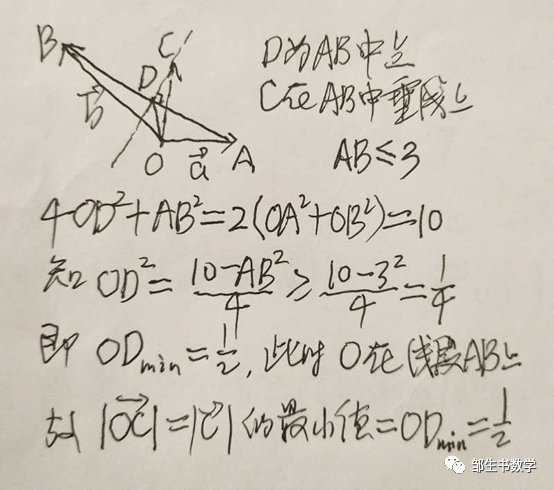 B
C
D为AB中点
D
C在AB中垂线上
b⃗
O
a⃗
A
AB≤3
4OD²+AB²=2(OA²+OB²)=10
知 OD²=(10-AB²)/4≥(10-3²)/4=1/4
即 ODmin=1/2,此时 O在线段AB上
故 |OC⃗|=|c⃗|的最小值=ODmin=1/2
邹生书数学